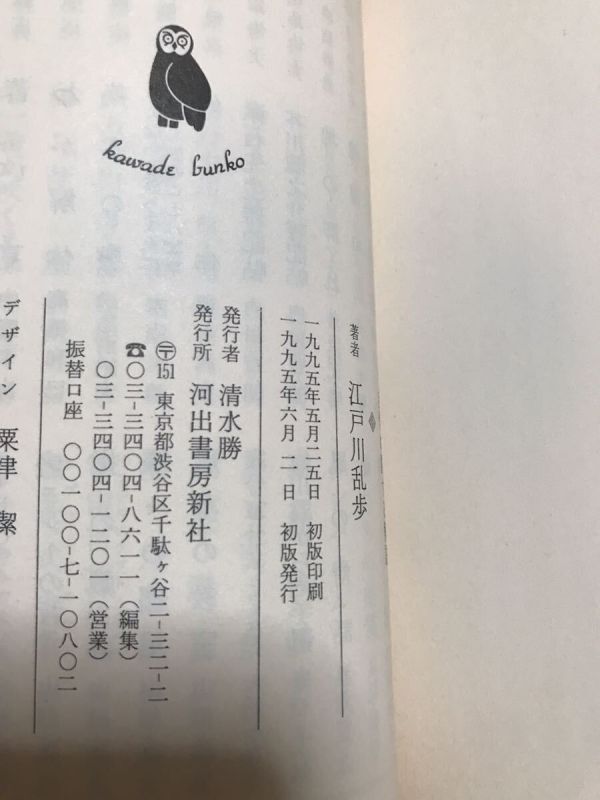 kawade bunko
著者 江戸川乱歩
一九九五年五月二五日 初版印刷
一九九五年六月二日 初版発行
発行者 清水勝
発行所 河出書房新社
〒151 東京都渋谷区千駄ヶ谷二-三二-二
☎〇三-三四〇四-八六一一（編集）
〇三-三四〇四-一二〇一（営業）
振替口座 〇〇一〇〇-七-一〇八〇二
デザイン 粟津潔